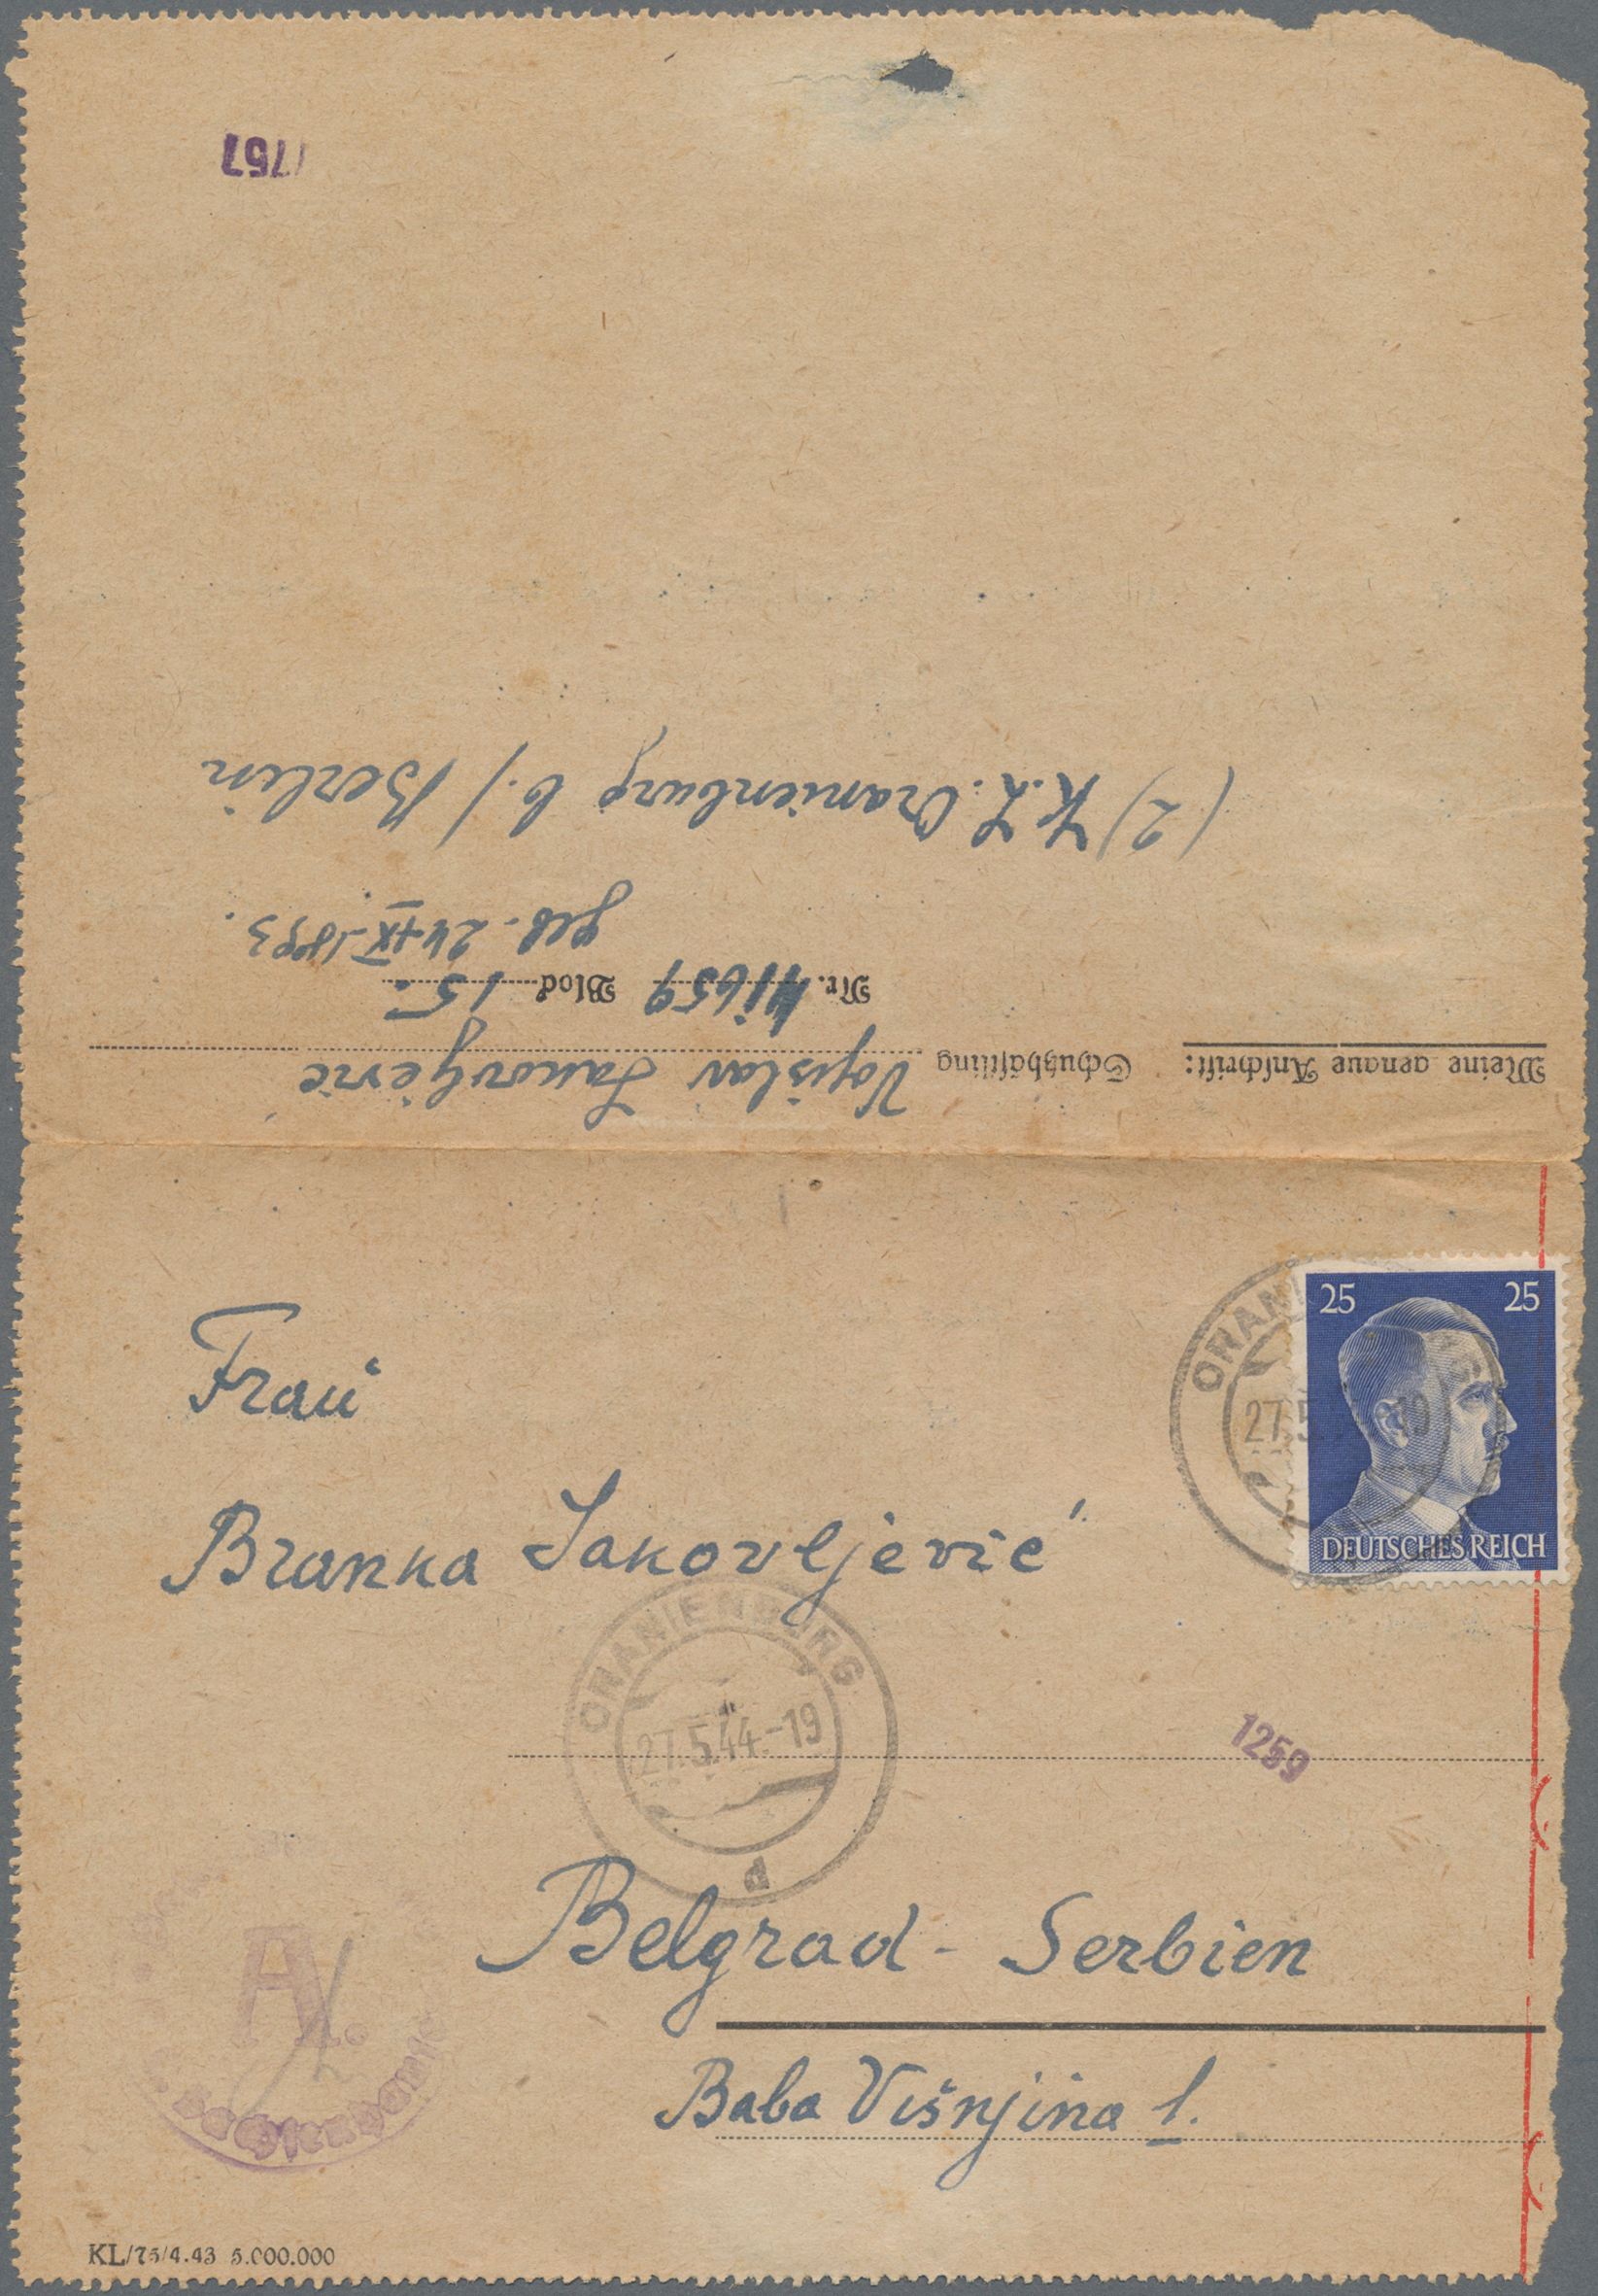 1757
Meine genaue Anschrift: Schutzhäftling Vojislav Jakovljević
Nr. 41659 Block 15.
geb. 24-IX-1893.
(2) K.L. Oranienburg b./Berlin
25 25
DEUTSCHES REICH
27.5 19
Frau
Branka Jakovljević
ORANIENBURG
27.5.44.-19
d
1259
A.
Belgrad - Serbien
Baba Višnjina 1.
KL/75/4.43 5.000.000